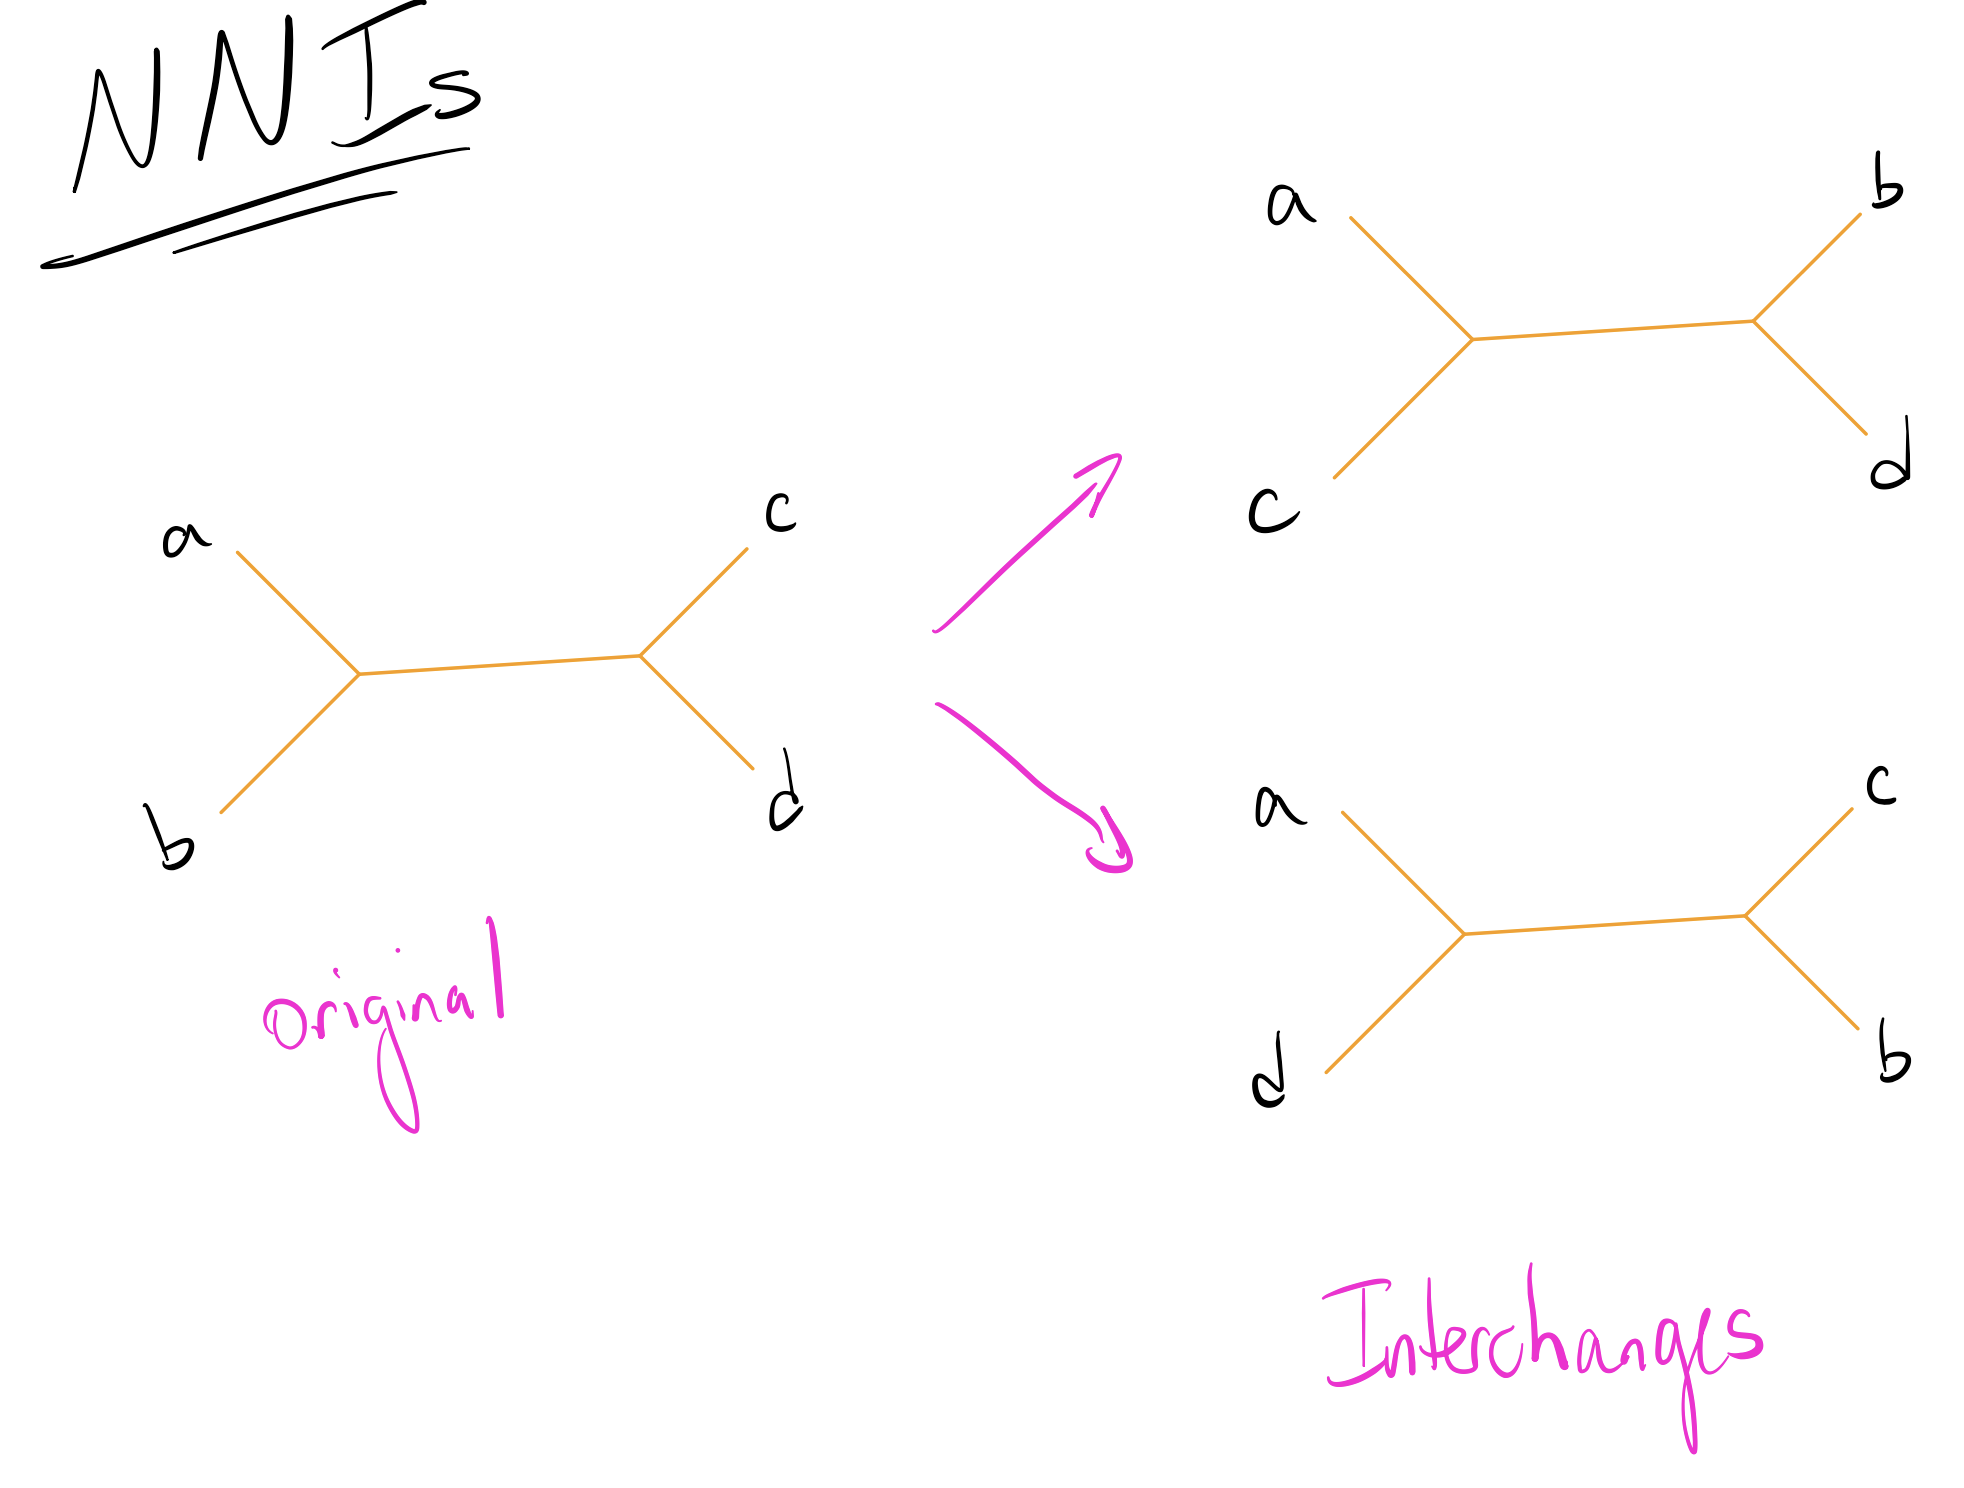 NNIs
a
b
c
d
original
a
c
b
d
a
d
c
b
Interchanges